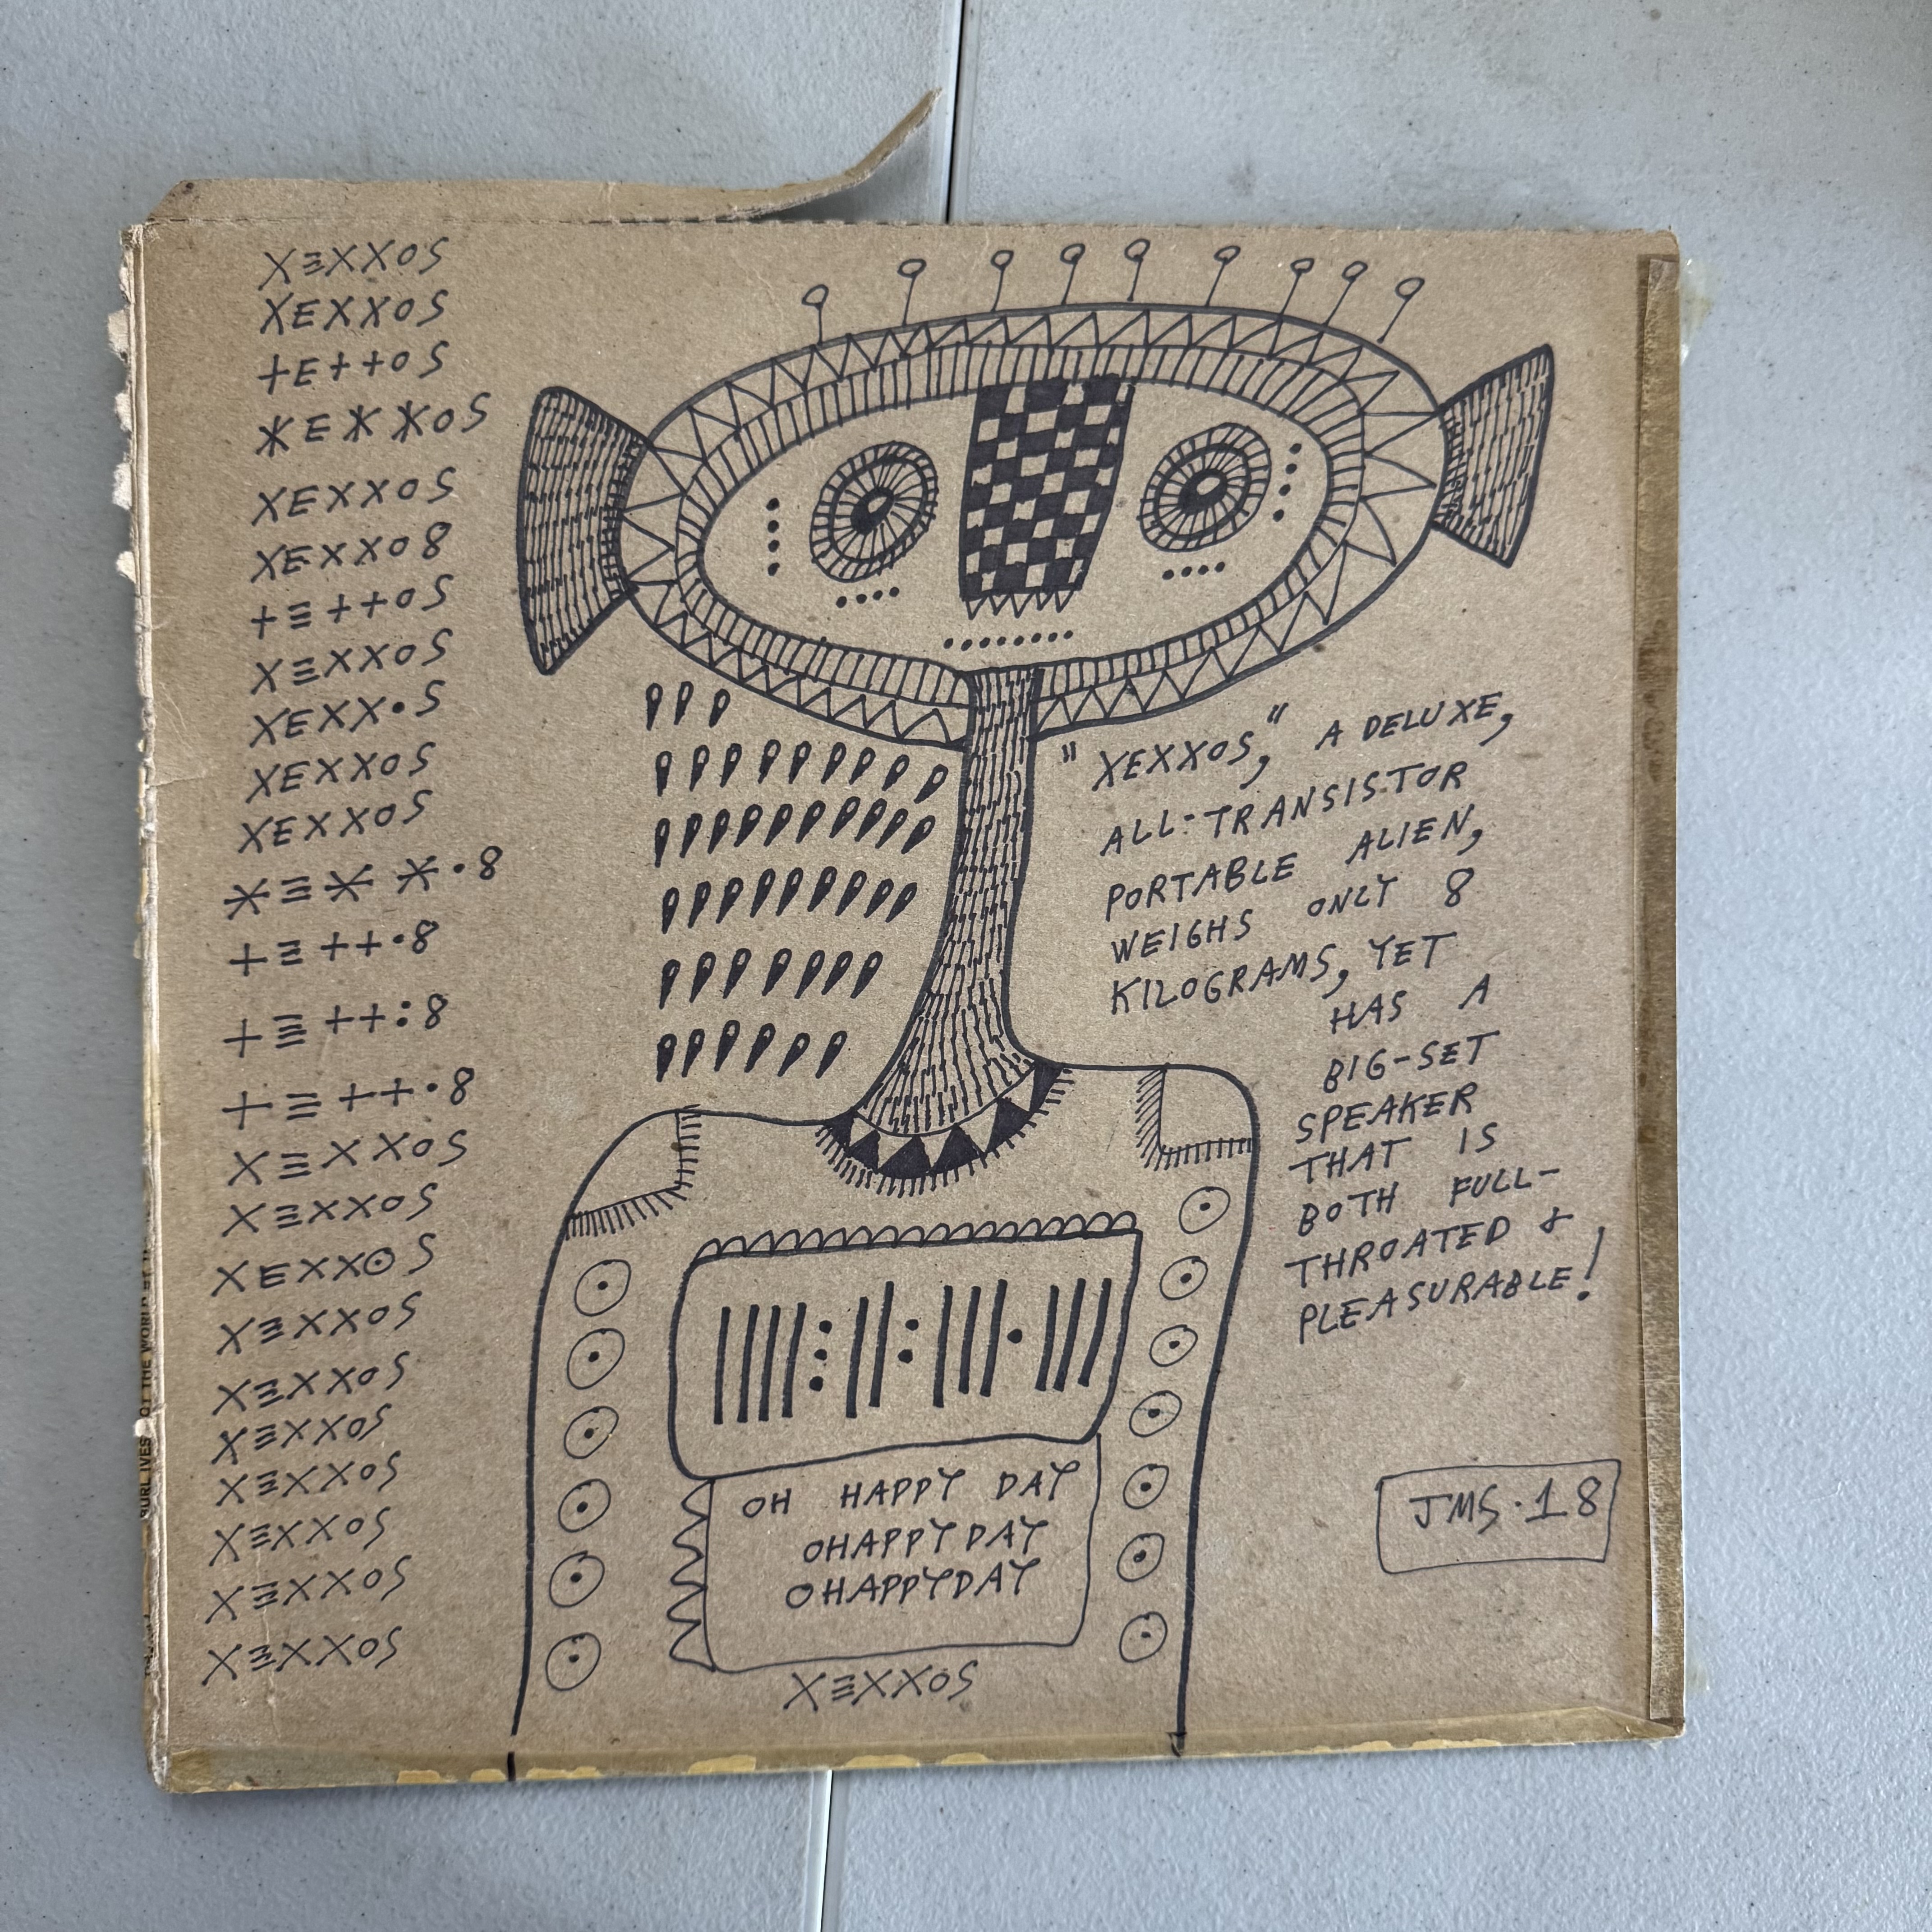 XΞXXOS
XEXXOS
+E++OS
*E**OS
XEXXOS
XEXXO8
+Ξ++OS
XΞXXOS
XEXX•S
XEXXOS
XEXXOS
*Ξ**•8
+Ξ++•8
+Ξ++:8
+Ξ++•8
XΞXXOS
XΞXXOS
XEXX⊙S
XΞXXOS
XΞXXOS
XΞXXOS
XΞXXOS
XΞXXOS
XΞXXOS
XΞXXOS
"XEXXOS," A DELUXE,
ALL-TRANSISTOR
PORTABLE ALIEN,
WEIGHS ONLY 8
KILOGRAMS, YET
HAS A
BIG-SET
SPEAKER
THAT IS
BOTH FULL-
THROATED &
PLEASURABLE!
OH HAPPY DAY
OHAPPY DAY
OHAPPYDAY
XΞXXOS
JMS·18
BURL IVES